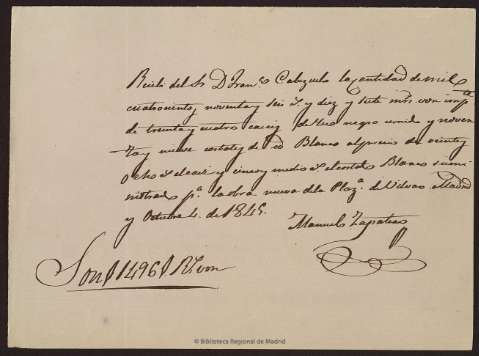 Recibí del Sr. D. Franco. Cabezuelo la cantidad de mil
cuatrocientos, noventa y seis r. y diez y siete mrs. von impte.
de treinta y cuatro caices de Yeso negro vendo y noven
ta y nueve costales de id Blanco al precio de veinte y
ocho r. el caiz y cinco y medio r. el costal Blanco sumi
nistrado pa. la obra nueva de la Plaza. de Madrid
y Octubre 4. de 1845.
Manuel Zapatero
Son 1496 Rs. von
© Biblioteca Regional de Madrid